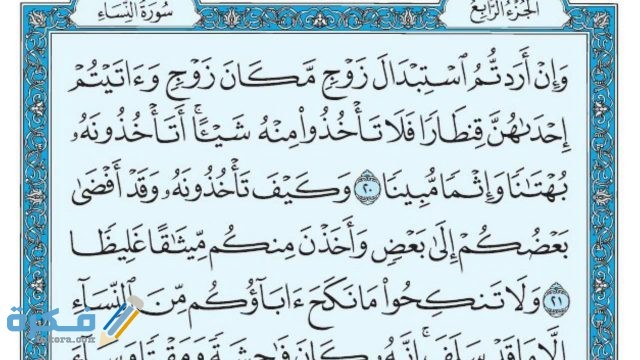 الجزء الرابع
سورة النساء
وَإِنْ أَرَدتُّمُ ٱسْتِبْدَالَ زَوْجٍ مَّكَانَ زَوْجٍ وَءَاتَيْتُمْ
إِحْدَىٰهُنَّ قِنطَارًا فَلَا تَأْخُذُوا۟ مِنْهُ شَيْـًٔا ۚ أَتَأْخُذُونَهُۥ
بُهْتَـٰنًا وَإِثْمًا مُّبِينًا ٢٠ وَكَيْفَ تَأْخُذُونَهُۥ وَقَدْ أَفْضَىٰ
بَعْضُكُمْ إِلَىٰ بَعْضٍ وَأَخَذْنَ مِنكُم مِّيثَـٰقًا غَلِيظًا
٢١ وَلَا تَنكِحُوا۟ مَا نَكَحَ ءَابَآؤُكُم مِّنَ ٱلنِّسَآءِ
إِلَّا مَا قَدْ سَلَفَ ۚ إِنَّهُۥ كَانَ فَـٰحِشَةً وَمَقْتًا وَسَآءَ